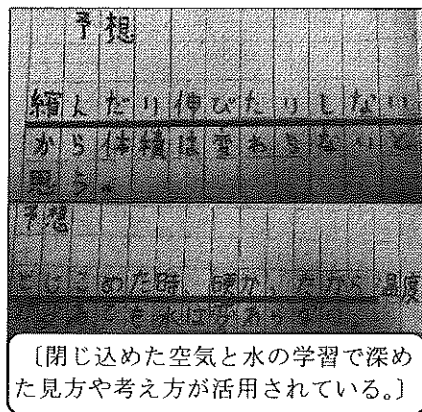 予想
縮んだり伸びたりしない
から体積は変わらないと
思う。
予想
とじこめた時、硬かったから温度
〔閉じ込めた空気と水の学習で深め
た見方や考え方が活用されている。〕